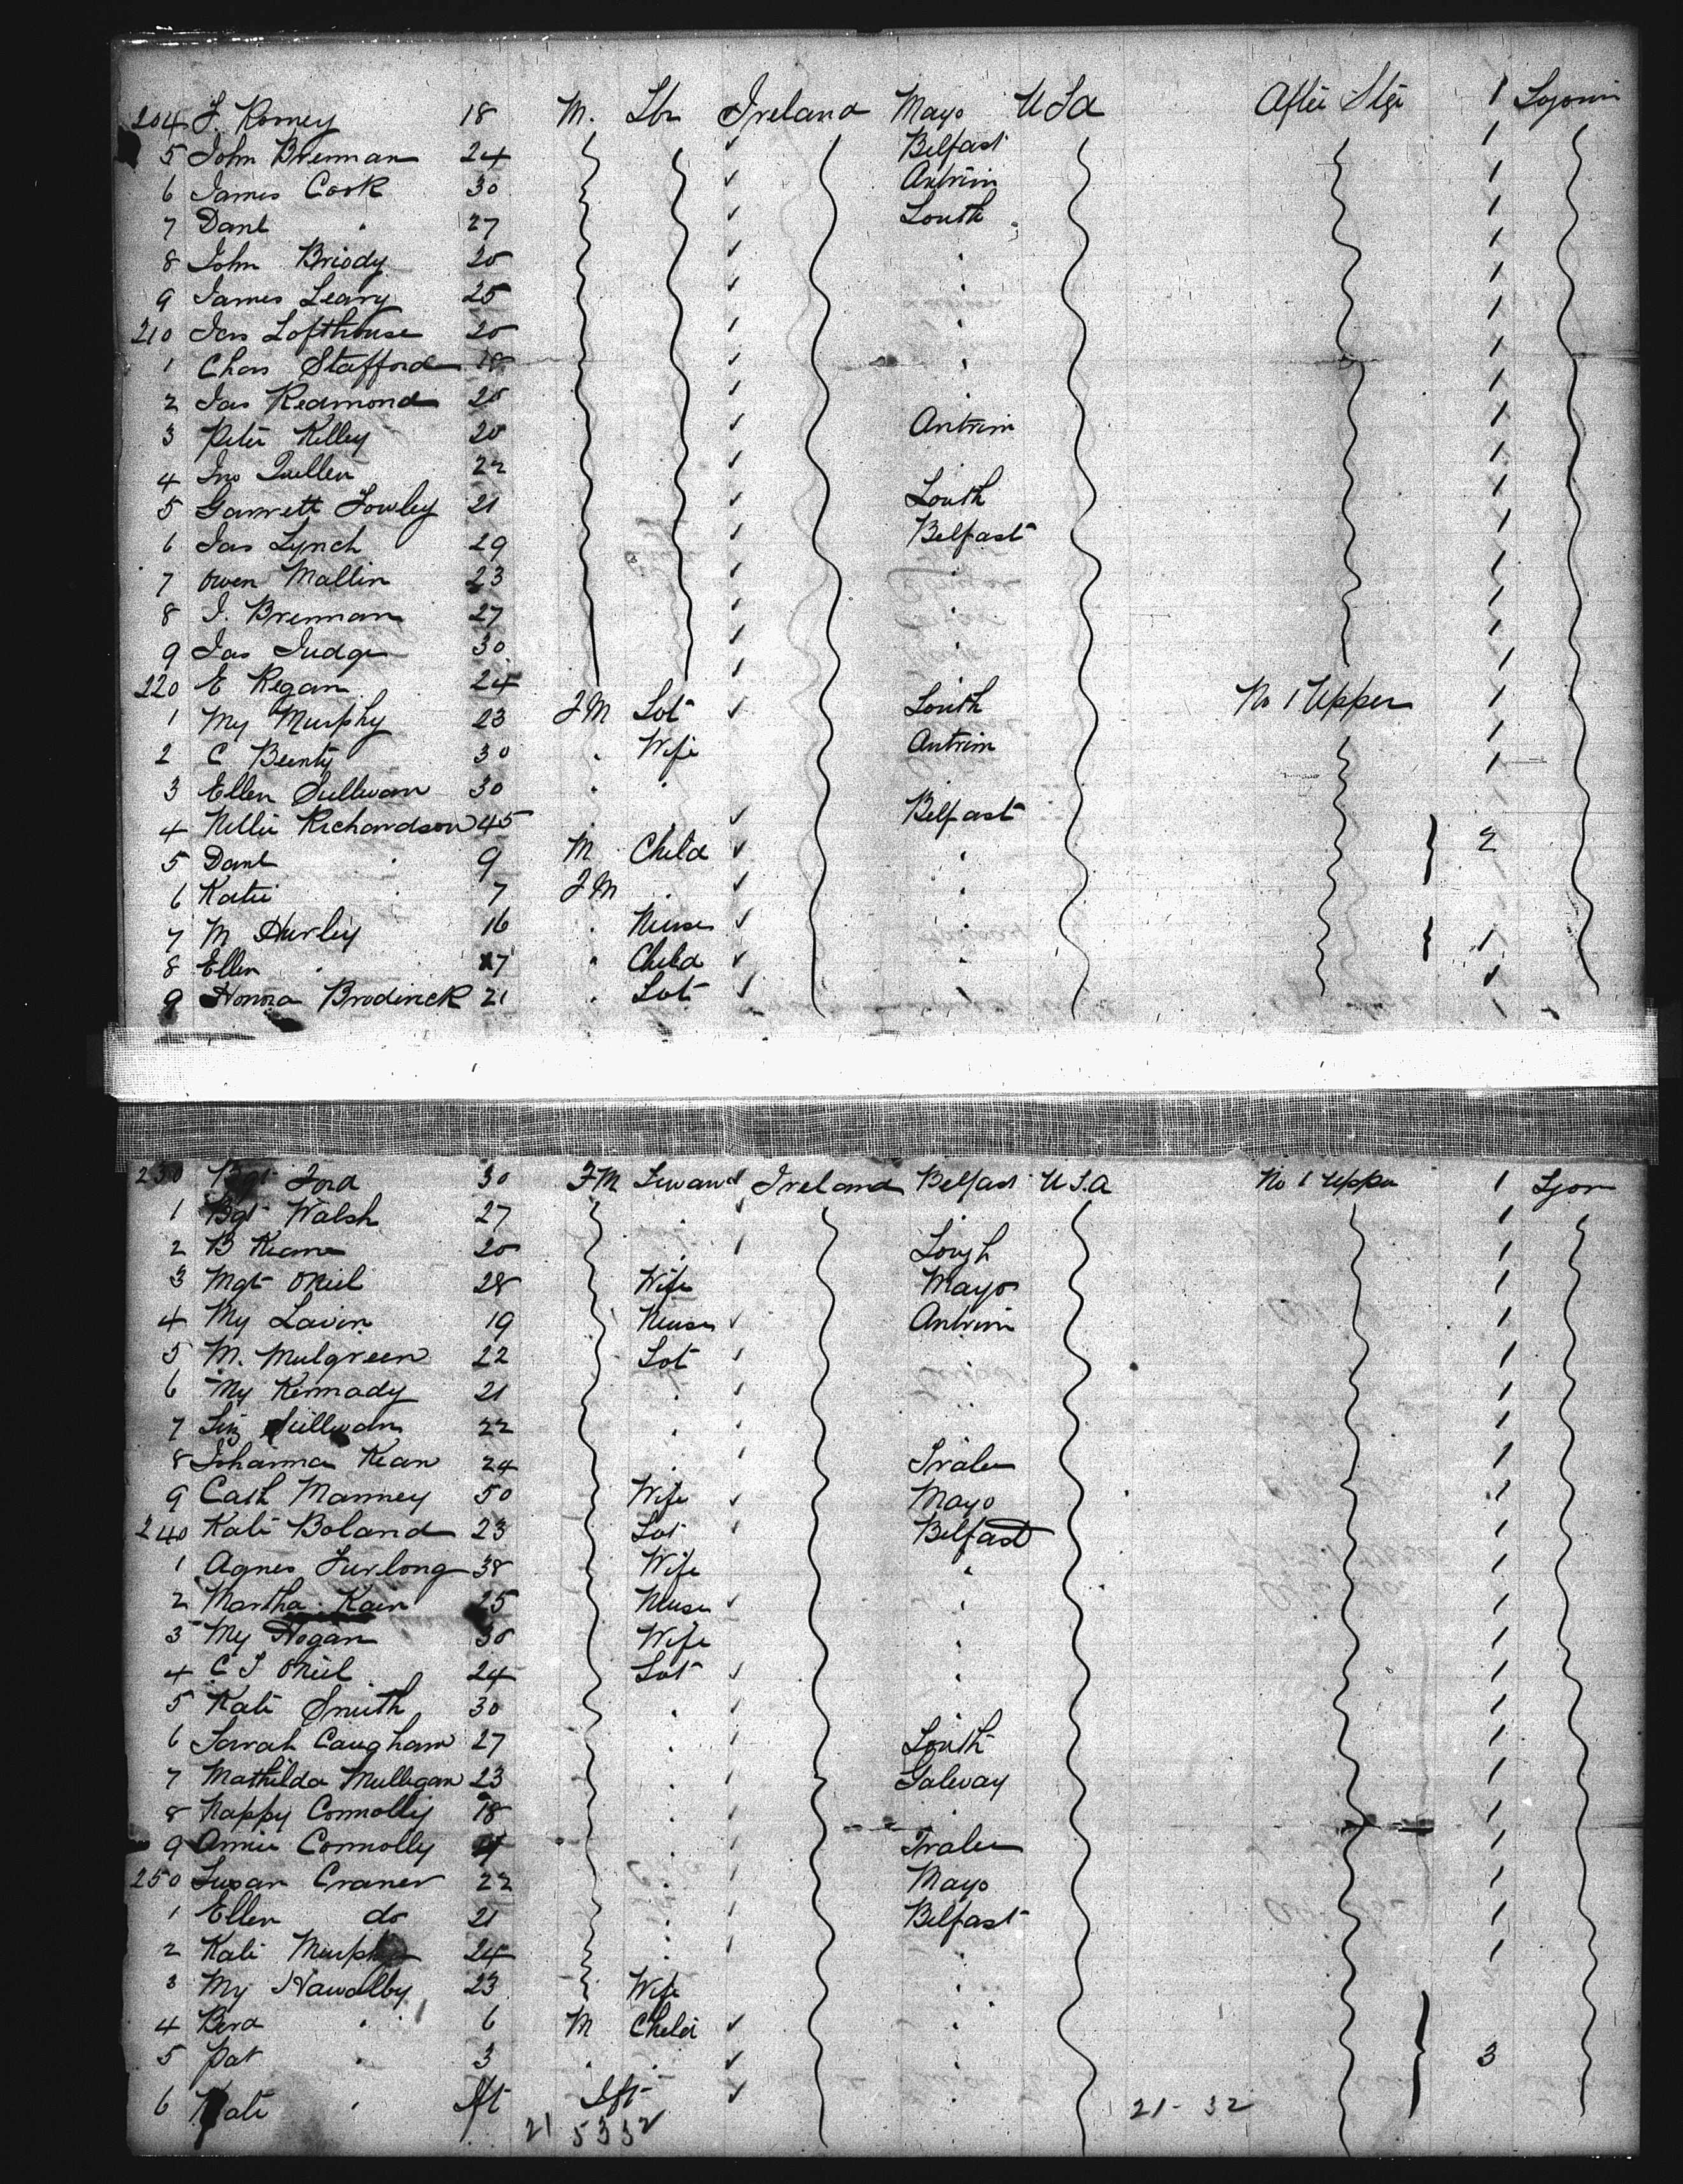 204 J. Romey 18 M. Lbr Ireland Mayo USA After Stge 1 Sojourn
5 John Brennan 24 Belfast 1
6 James Cook 30 Antrim 1
7 Danl " 27 Louth 1
8 John Briody 20 " 1
9 James Leary 25 " 1
210 Jas Lofthouse 20 " 1
1 Chas Stafford 18 " 1
2 Jas Redmond 20 1
3 Peter Kelley 20 Antrim 1
4 Jno 22 1
5 Garrett Fowley 21 Louth 1
6 Jas Lynch 29 Belfast 1
7 Owen Mallin 23 " 1
8 J. Brennan 27 " 1
9 Jas Judge 30 " 1
220 E Regan 24 1
1 My Murphy 23 FM Sot Louth No 1 Upper 1
2 C Beenty 30 " Wife Antrim 1
3 Ellen Sullivan 30 " " 1
4 Nellie Richardson 45 " " Belfast
5 Danl " 9 M Child " 2
6 Katie " 7 FM " "
7 M Hurley 16 " Nurse "
8 Ellen " 7 " Child " 1
9 Honora Brodrick 21 " Sot " 1
230 Bgt Ford 30 FM Servant Ireland Belfast USA No 1 Upper 1 Sjor
1 Bgt Walsh 27 " 1
2 B Keane 20 " Lough 1
3 Mgt ONeil 28 Wife Mayo 1
4 My Lavin 19 Nurse Antrim 1
5 M. Mulgreen 22 Sot " 1
6 My Kennady 21 " " 1
7 Liz Sullivan 22 " " 1
8 Johanna Kean 24 " Tralee 1
9 Cath Manney 50 Wife Mayo 1
240 Kate Boland 23 Sot Belfast 1
1 Agnes Furlong 38 Wife " 1
2 Martha Kain 25 Nurse " 1
3 My Hogan 30 Wife " 1
4 C J ONeil 24 Sot " 1
5 Kate Smith 30 " 1
6 Sarah Caugham 27 " Louth 1
7 Mathilda Mulligan 23 " Galway 1
8 Nappy Connolly 18 " " 1
9 Annie Connolly " Tralee 1
250 Susan Craner 22 " Mayo 1
1 Ellen do 21 " Belfast 1
2 Kate Murphy 24 " " 1
3 My Nawalby 23 Wife "
4 " 6 M Child "
5 Pat " 3 " " " 3
6 Kate " Ift Ift "
21 5332 21-32